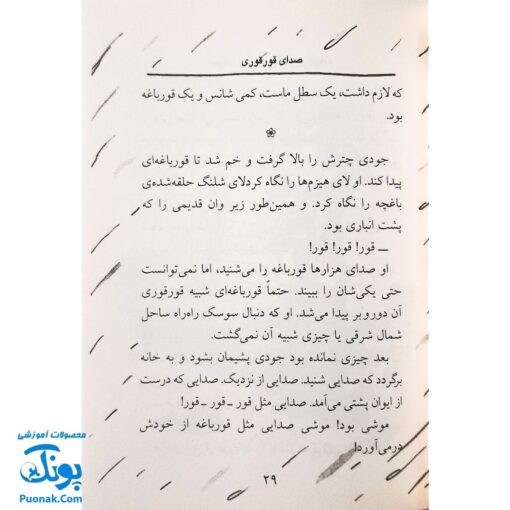 صدای قورقوری
که لازم داشت، یک سطل ماست، کمی شانس و یک قورباغه
بود.
جودی چترش را بالا گرفت و خم شد تا قورباغه‌ای
پیدا کند. او لای هیزم‌ها را نگاه کردلای شلنگ حلقه‌شده‌ی
باغچه را نگاه کرد. و همین‌طور زیر وان قدیمی را که
پشت انباری بود.
ــ قور! قور! قور!
او صدای هزارها قورباغه را می‌شنید، اما نمی‌توانست
حتی یکی‌شان را ببیند. حتماً قورباغه‌ای شبیه قورقوری
آن دوروبر پیدا می‌شد. او که دنبال سوسک راه‌راه ساحل
شمال شرقی یا چیزی شبیه آن نمی‌گشت.
بعد چیزی نمانده بود جودی پشیمان بشود و به خانه
برگردد که صدایی شنید. صدایی از نزدیک. صدایی که درست
از ایوان پشتی می‌آمد. صدایی مثل قور ـ قور ـ قور!
موشی بود! موشی صدایی مثل قورباغه از خودش
درمی‌آورد!
۲۹
محصولات آموزشی
پونک
Puonak.Com